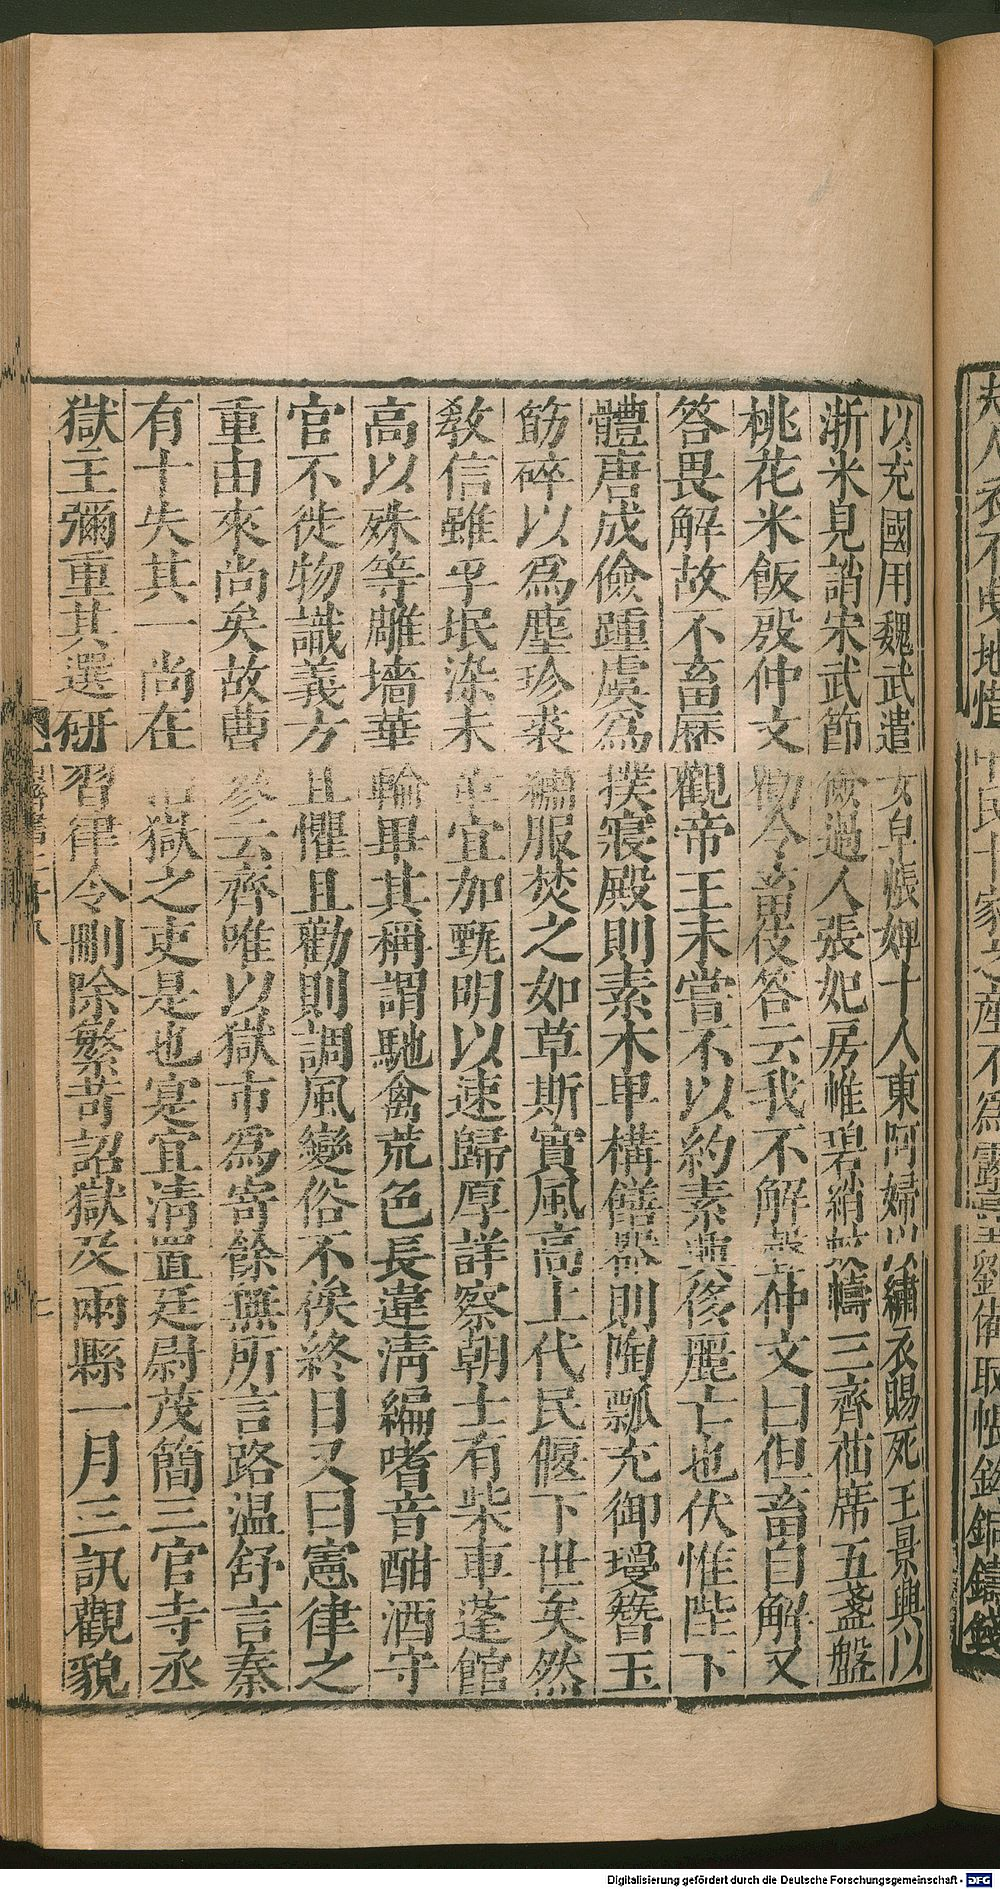 以充國用魏武遣女皁帳婢十人東阿婦以繡衣賜死王景興以
淅米見誚宋武節儉過人張妃房惟碧綃蚊幬三齊苮席五盞盤
桃花米飯殷仲文勸令畜伎答云我不解聲仲文曰但畜自解又
答畏解故不畜歷觀帝王未嘗不以約素興侈麗亡也伏惟陛下
體唐成儉踵虞爲撲寢殿則素木甲構饍器則陶瓢充御瓊簪玉
筯碎以爲塵珍裘繡服焚之如草斯實風高上代民偃下世矣然
敎信雖孚氓染未革宜加甄明以速歸厚詳察朝士有柴車蓬館
高以殊等雕墻華輪畢其稱謂馳禽荒色長違淸編嗜音酣酒守
官不徙物識義方且懼且勸則調風變俗不俟終日又曰憲律之
重由來尚矣故曹參云齊唯以獄市爲寄餘無所言路温舒言秦
有十失其一尚在治獄之吏是也寔宜淸置廷尉茂簡三官寺丞
獄主彌重其選硏習律令刪除繁苛詔獄及兩縣一月三訊觀貌
夫人衣不曳地惜中民十家之產不爲露臺劉備取帳鉤銅鑄錢
Digitalisierung gefördert durch die Deutsche Forschungsgemeinschaft - DFG